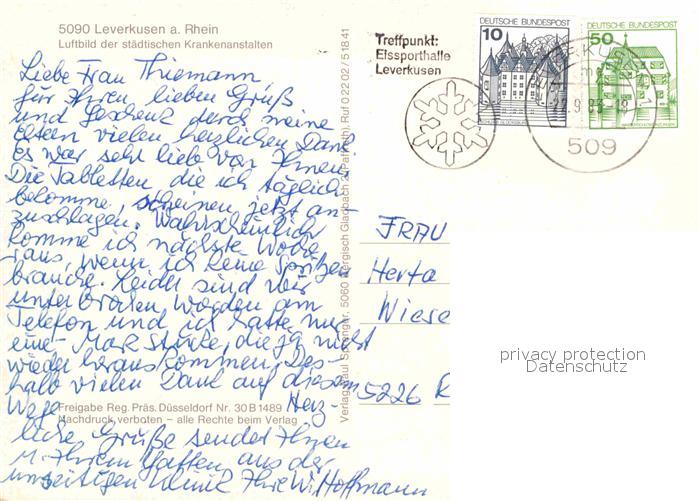 5090 Leverkusen a. Rhein
Luftbild der städtischen Krankenanstalten
Liebe Frau Thiemann
für Ihren lieben Gruß
und Geschenk durch meine
Eltern vielen herzlichen Dank
es war sehr lieb von Ihnen.
Die Tabletten die ich täglich
bekomme, scheinen jetzt an-
zuschlagen. Wahrscheinlich
komme ich nächste Woche
raus, wenn ich keine Spritzen
brauche. Leider sind wir
unterbrochen worden am
Telefon und ich hatte nur
eine- Mark Stücke, die ja nicht
wieder herauskommen. Des-
halb vielen Dank auf diesem
Wege Herz-
liche Grüße sendet Ihnen
u. Ihrem Gatten aus der
Klinik Ihre W. Hoffmann
Freigabe Reg. Präs. Düsseldorf Nr. 30 B 1489
Nachdruck verboten – alle Rechte beim Verlag
5060 Bergisch Gladbach 2 Ruf 0 22 02 / 5 18 41
Treffpunkt:
Eissporthalle
Leverkusen
10
DEUTSCHE BUNDESPOST
DEUTSCHE BUNDESPOST
50
509
FRAU
Herta
Wiese
5226 R
privacy protection
Datenschutz